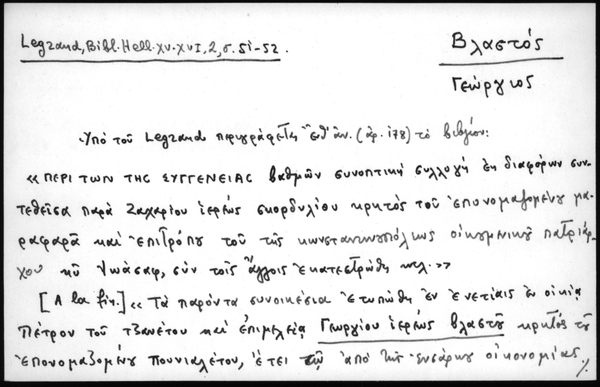 Legrand, Bibl. Hell. XV-XVI, 2, σ. 51-52.
Βλαστός
Γεώργιος
Ὑπὸ τοῦ Legrand περιγράφεται (ἀρ. 178) τὸ βιβλίον:
«ΠΕΡΙ ΤΩΝ ΤΗΣ ΣΥΓΓΕΝΕΙΑΣ βαθμῶν συνοπτικὴ συλλογὴ ἐκ διαφόρων συν-
τεθεῖσα παρὰ Ζαχαρίου ἱερέως σκορδυλίου κρητὸς τοῦ ἐπονομαζομένου μα-
ραφαρᾶ καὶ ἐπιτρόπου τοῦ τῆς κωνσταντινουπόλεως οἰκουμενικοῦ πατριάρ-
χου κῦ ἰωάσαφ, σὺν τοῖς ἄλλοις ἐκατεστρώθη κτλ.»
[A la fin.] «Τὰ παρόντα συνοικέσια ἐτυπώθη ἐν ἐνετίαις ἐν οἰκίᾳ
Πέτρου τοῦ τζανέτου καὶ ἐπιμελείᾳ Γεωργίου ἱερέως βλαστοῦ κρητὸς τοῦ
ἐπονομαζομένου πουνιαλέτου, ἔτει τῷ ἀπὸ τῆς ἐνσάρκου οἰκονομίας